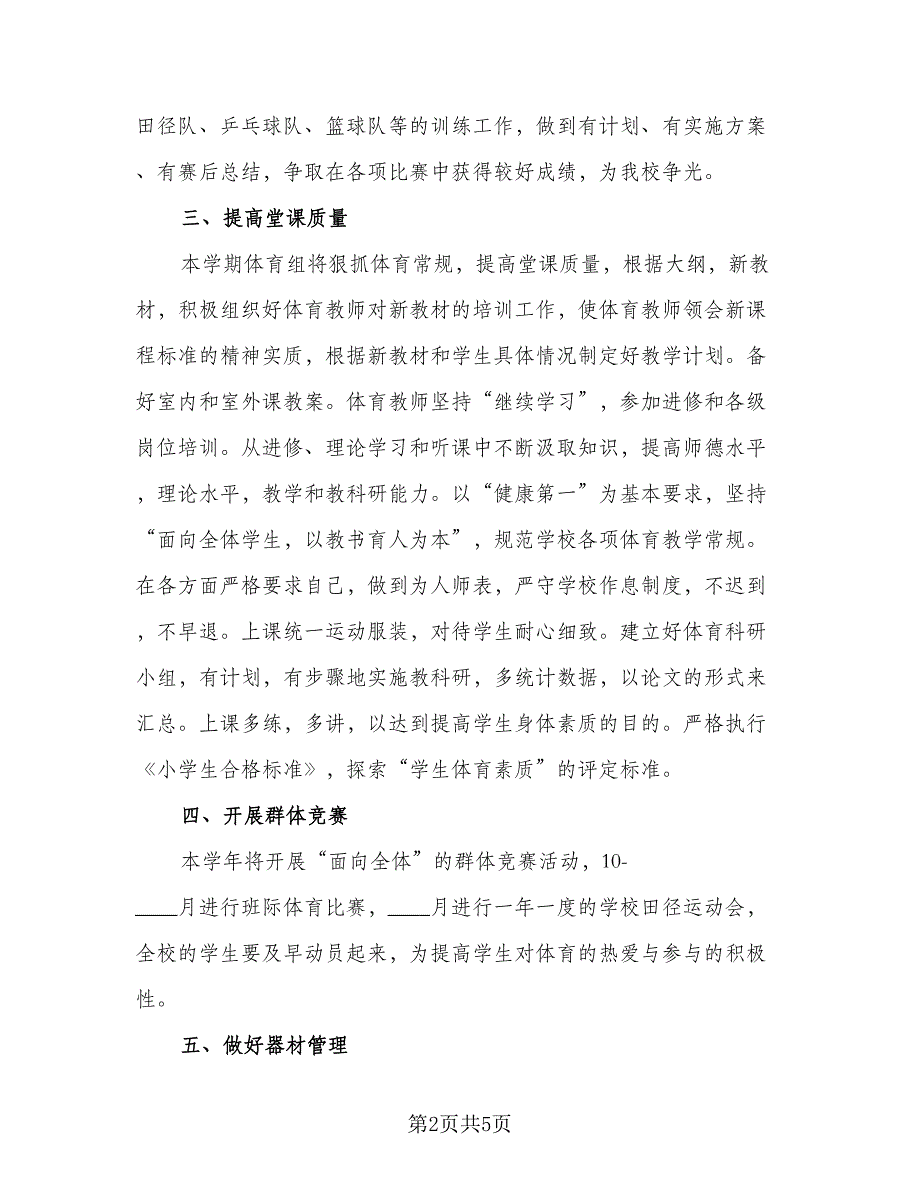 田径队、乒乓球队、篮球队等的训练工作，做到有计划、有实施方案
、有赛后总结，争取在各项比赛中获得较好成绩，为我校争光。
三、提高堂课质量
本学期体育组将狠抓体育常规，提高堂课质量，根据大纲，新教
材，积极组织好体育教师对新教材的培训工作，使体育教师领会新课
程标准的精神实质，根据新教材和学生具体情况制定好教学计划。备
好室内和室外课教案。体育教师坚持“继续学习”，参加进修和各级
岗位培训。从进修、理论学习和听课中不断汲取知识，提高师德水平
，理论水平，教学和教科研能力。以“健康第一”为基本要求，坚持
“面向全体学生，以教书育人为本”，规范学校各项体育教学常规。
在各方面严格要求自己，做到为人师表，严守学校作息制度，不迟到
，不早退。上课统一运动服装，对待学生耐心细致。建立好体育科研
小组，有计划，有步骤地实施教科研，多统计数据，以论文的形式来
汇总。上课多练，多讲，以达到提高学生身体素质的目的。严格执行
《小学生合格标准》，探索“学生体育素质”的评定标准。
四、开展群体竞赛
本学年将开展“面向全体”的群体竞赛活动，10-
____月进行班际体育比赛，____月进行一年一度的学校田径运动会，
全校的学生要及早动员起来，为提高学生对体育的热爱与参与的积极
性。
五、做好器材管理
第2页共5页